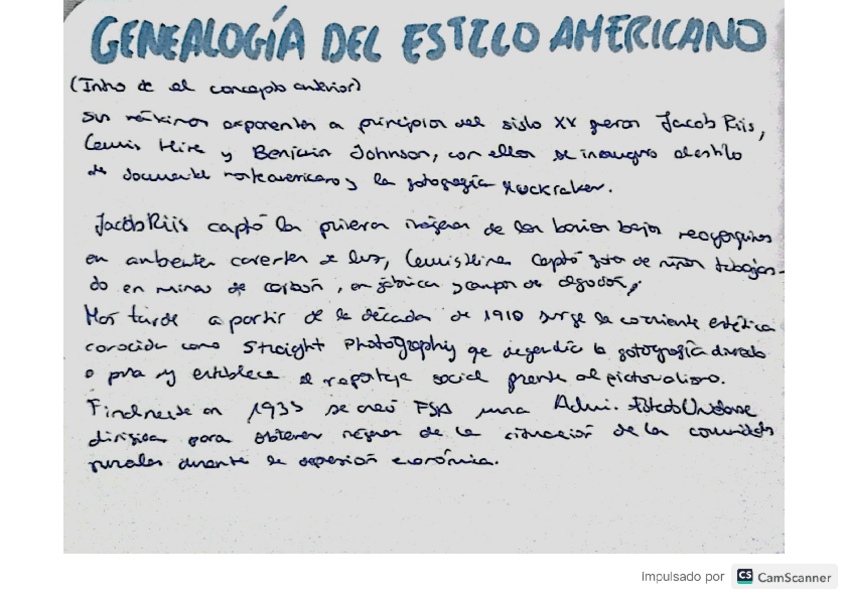 GENEALOGÍA DEL ESTILO AMERICANO
(Intro de el concepto anterior)
Sus máximos exponentes a principios del siglo XX fueron Jacob Riis,
Lewis Hine y Benjamin Johnson, con ellos se inauguró el estilo
de documental norteamericano y la fotografía muckraker.
Jacob Riis captó las primeras imágenes de los barrios bajos neoyorquinos
en ambientes carentes de luz, Lewis Hine captó fotos de niños trabajan-
do en minas de carbón, en fábricas y campos de algodón,
Más tarde a partir de la década de 1910 surge la corriente estética
conocida como Straight Photography qe defendía la fotografía directa
o pura y establece el reportaje social frente al pictorialismo.
Finalmente en 1935 se creó FSA una Admi. Estado Unidense
dirigida para obtener imágenes de la situación de las comunidades
rurales durante la depresión económica.
Impulsado por CS CamScanner